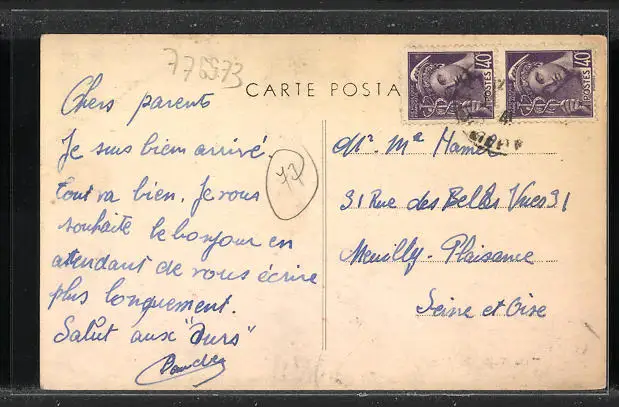 776573
CARTE POSTA
40
POSTES
40
POSTES
Chers parents
Je suis bien arrivé.
tout va bien. Je vous
souhaite le bonjour en
attendant de vous écrire
plus longuement.
Salut aux "Ours"
77
Mr. Me Hamel
31 Rue des Belles Vues 31
Neuilly-Plaisance
Seine et Oise